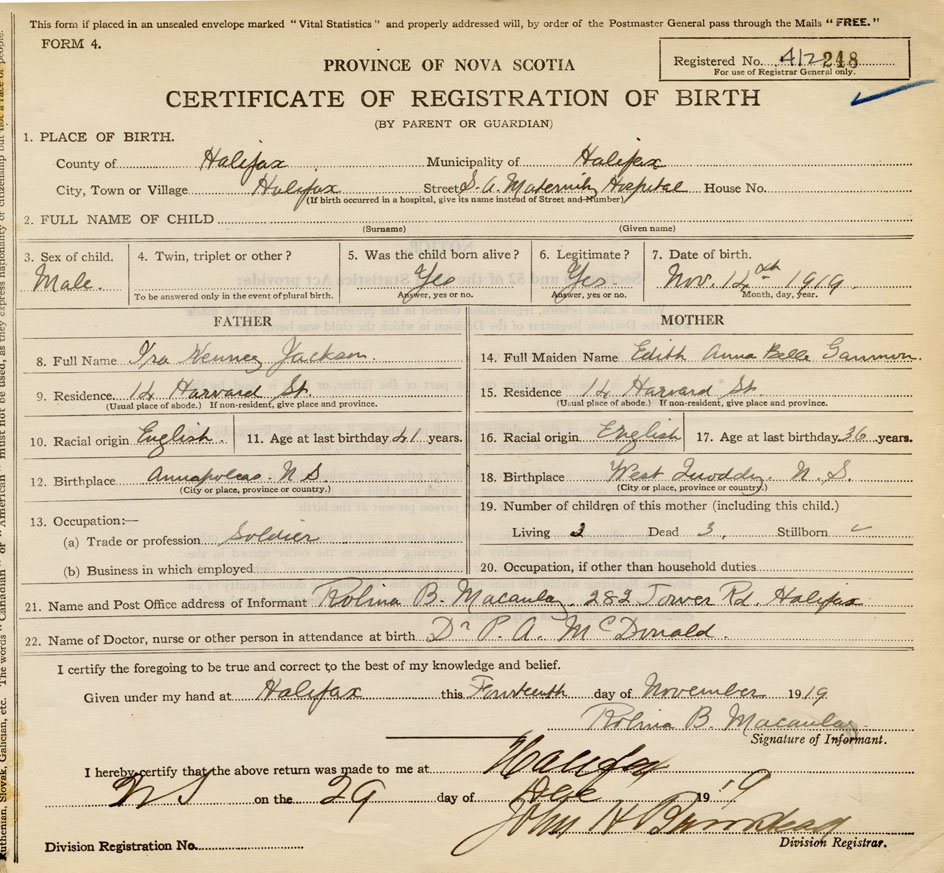 This form if placed in an unsealed envelope marked "Vital Statistics" and properly addressed will, by order of the Postmaster General pass through the Mails "FREE."
FORM 4.
Registered No. 248
For use of Registrar General only.
PROVINCE OF NOVA SCOTIA
CERTIFICATE OF REGISTRATION OF BIRTH
(BY PARENT OR GUARDIAN)
1. PLACE OF BIRTH.
County of Halifax Municipality of Halifax
City, Town or Village Halifax Street S. A. Maternity Hospital House No.
(If birth occurred in a hospital, give its name instead of Street and Number)
2. FULL NAME OF CHILD
(Surname) (Given name)
3. Sex of child. 4. Twin, triplet or other? 5. Was the child born alive? 6. Legitimate? 7. Date of birth.
Male. Yes Yes Nov. 14th 1919.
To be answered only in the event of plural birth. Answer, yes or no. Answer, yes or no. Month, day, year.
FATHER MOTHER
8. Full Name Ira Kenney Jackson. 14. Full Maiden Name Edith Anna Belle Gammon.
9. Residence 14 Harvard St. 15. Residence 14 Harvard St.
(Usual place of abode.) If non-resident, give place and province. (Usual place of abode.) If non-resident, give place and province.
10. Racial origin English. 11. Age at last birthday 41 years. 16. Racial origin English 17. Age at last birthday 36 years.
12. Birthplace Annapoleas. N S. 18. Birthplace West Quoddy. N. S.
(City or place, province or country.) (City or place, province or country.)
13. Occupation:— 19. Number of children of this mother (including this child.)
(a) Trade or profession Soldier Living 2 Dead 3. Stillborn
(b) Business in which employed 20. Occupation, if other than household duties
21. Name and Post Office address of Informant Rolina B. Macaulay. 282 Tower Rd. Halifax
22. Name of Doctor, nurse or other person in attendance at birth Dr P. A. McDonald.
I certify the foregoing to be true and correct to the best of my knowledge and belief.
Given under my hand at Halifax this Fourteenth day of November 1919
Rolina B. Macaulay
Signature of Informant.
I hereby certify that the above return was made to me at Halifax
NS on the 29 day of Dec 1919
John H
Division Registration No. Division Registrar.